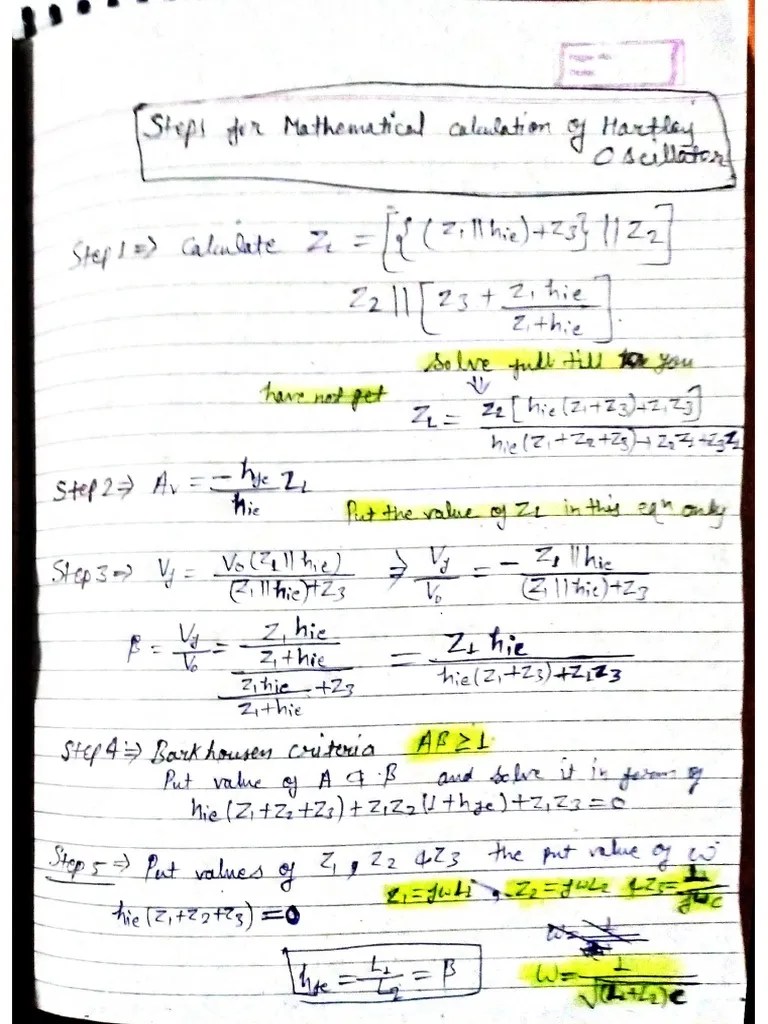 Steps for Mathematical calculation of Hartley
Oscillator
Step 1 => Calculate Z_L = [{(Z1 || hie) + Z3} || Z2]
Z2 || [Z3 + (Z1 hie)/(Z1 + hie)].
Solve full till you
have not get
Z_L = Z2 [hie(Z1+Z3)+Z1Z3] / hie(Z1+Z2+Z3)+Z2Z1+Z3Z1
Step 2 => Av = -hfe/hie ZL
Put the value of ZL in this eqn only
Step 3 => Vf = Vo(Z1 || hie) / (Z1 || hie)+Z3 => Vf/Vo = - Z1 || hie / (Z1 || hie)+Z3
β = Vf/Vo = (Z1 hie / Z1+hie) / (Z1 hie / Z1+hie + Z3) = Z1 hie / hie(Z1+Z3)+Z1Z3
Step 4 => Barkhousen criteria Aβ ≥ 1
Put value of A & β and solve it in form of
hie(Z1+Z2+Z3)+Z1Z2(1+hfe)+Z1Z3 = 0
Step 5 => Put values of Z1, Z2 & Z3 the put value of ω
Z1 = jωL1, Z2 = jωL2 & Z3 = 1/jωc
hie(Z1+Z2+Z3) = 0
hfe = L1/L2 = β
ω = 1/√(L1+L2)c